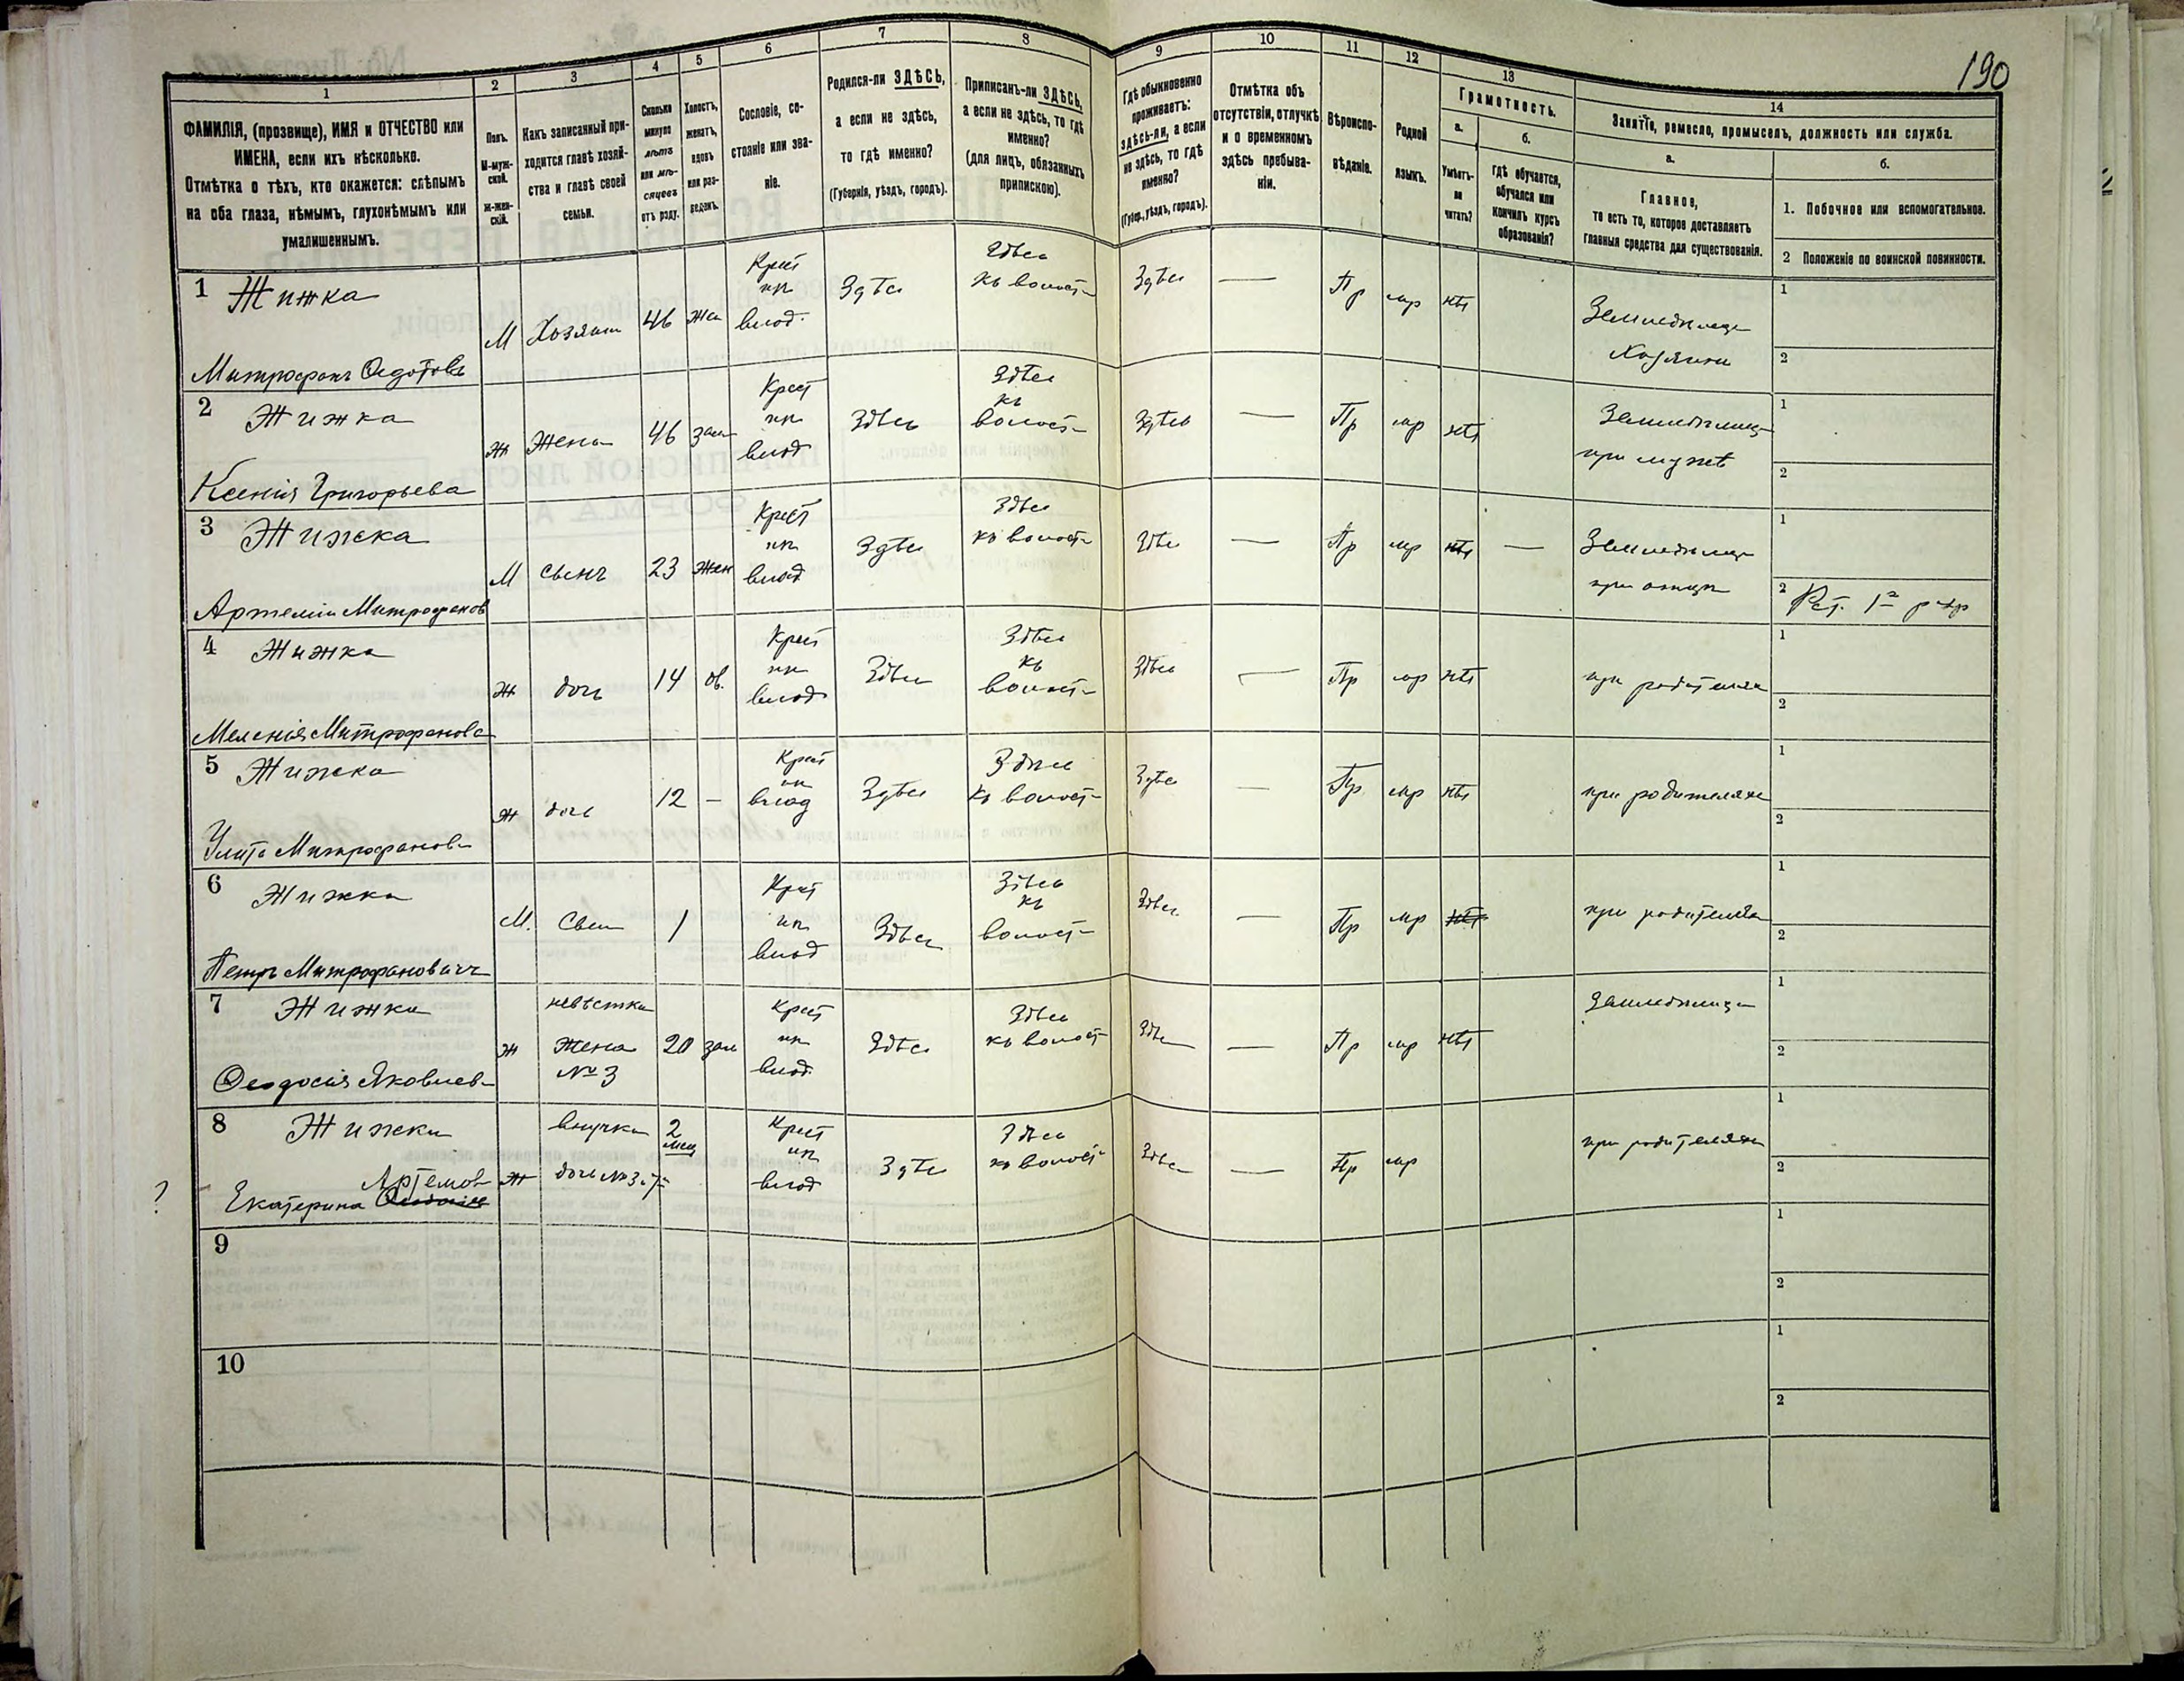 190
1
2
3
4
5
6
7
8
9
10
11
12
13
14
ФАМИЛІЯ, (прозвище), ИМЯ и ОТЧЕСТВО или
ИМЕНА, если ихъ нѣсколько.
Отмѣтка о тѣхъ, кто окажется: слѣпымъ
на оба глаза, нѣмымъ, глухонѣмымъ или
умалишеннымъ.
Полъ.
М-муж-
ской.
Ж-жен-
скій.
Какъ записанный при-
ходится главѣ хозяй-
ства и главѣ своей
семьи.
Сколько
минуло
лѣтъ
или мѣ-
сяцевъ
отъ роду.
Холостъ,
женатъ,
вдовъ
или раз-
веденъ.
Сословіе, со-
стояніе или зва-
ніе.
Родился-ли ЗДѢСЬ,
а если не здѣсь,
то гдѣ именно?
(Губернія, уѣздъ, городъ).
Приписанъ-ли ЗДѢСЬ,
а если не здѣсь, то гдѣ
именно?
(для лицъ, обязанныхъ
припискою).
Гдѣ обыкновенно
проживаетъ:
здѣсь-ли, а если
не здѣсь, то гдѣ
именно?
(Губер., уѣздъ, городъ).
Отмѣтка объ
отсутствіи, отлучкѣ
и о временномъ
здѣсь пребыва-
ніи.
Вѣроиспо-
вѣданіе.
Родной
языкъ.
Грамотность.
а.
б.
Умѣетъ-
ли
читать?
гдѣ обучается,
обучался или
кончилъ курсъ
образованія?
Занятіе, ремесло, промыселъ, должность или служба.
а.
б.
Главное,
то есть то, которое доставляетъ
главныя средства для существованія.
1. Побочное или вспомогательное.
2 Положеніе по воинской повинности.
1 Жижка
Митрофанъ Федотовъ
М Хозяин 46 жен Крест
ик
влад.
Здѣсь
Здѣсь
къ волост
Здѣсь — Пр мр нѣт
Земледѣлец
Хозяин
1
2
2 Жижка
Ксенія Григорьева
ж Жена 46 зам Крест
ик
влад
Здѣсь
Здѣсь
къ
волост
Здѣсь — Пр мр нѣт
Земледѣлец
при мужѣ
1
2
3 Жижка
Артемій Митрофанов
М сынъ 23 жен Крест
ик
влад
Здѣсь
Здѣсь
къ волост
Здѣсь — Пр мр нѣт —
Земледѣлец
при отцѣ
1
2 Рат. 1й р-др
4 Жижка
Меланія Митрофанова
ж дочь 14 дв. Крест
ик
влад
Здѣсь
Здѣсь
къ
волост
Здѣсь — Пр мр нѣт
при родителях
1
2
5 Жижка
Улита Митрофанов
ж дочь 12 — Крест
ик
влад
Здѣсь
Здѣсь
къ волост
Здѣсь — Пр мр нѣт
при родителях
1
2
6 Жижка
Петръ Митрофановичъ
М. Сын 1 Крест
ик
влад
Здѣсь
Здѣсь
къ
волост
Здѣсь — Пр мр нѣт
при родителях
1
2
7 Жижка
Феодосія Яковлев
ж невѣстка
Жена
№ 3
20 зам Крест
ик
влад.
Здѣсь
Здѣсь
къ волост
Здѣсь — Пр мр нѣт
Земледѣлец
1
2
8 Жижка
Артемов
? Екатерина
ж внучка
дочь №3 и 7
2
мец
Крест
ик
влад
Здѣсь
Здѣсь
къ волост
Здѣсь — Пр мр
при родителях
1
2
9
1
2
10
1
2